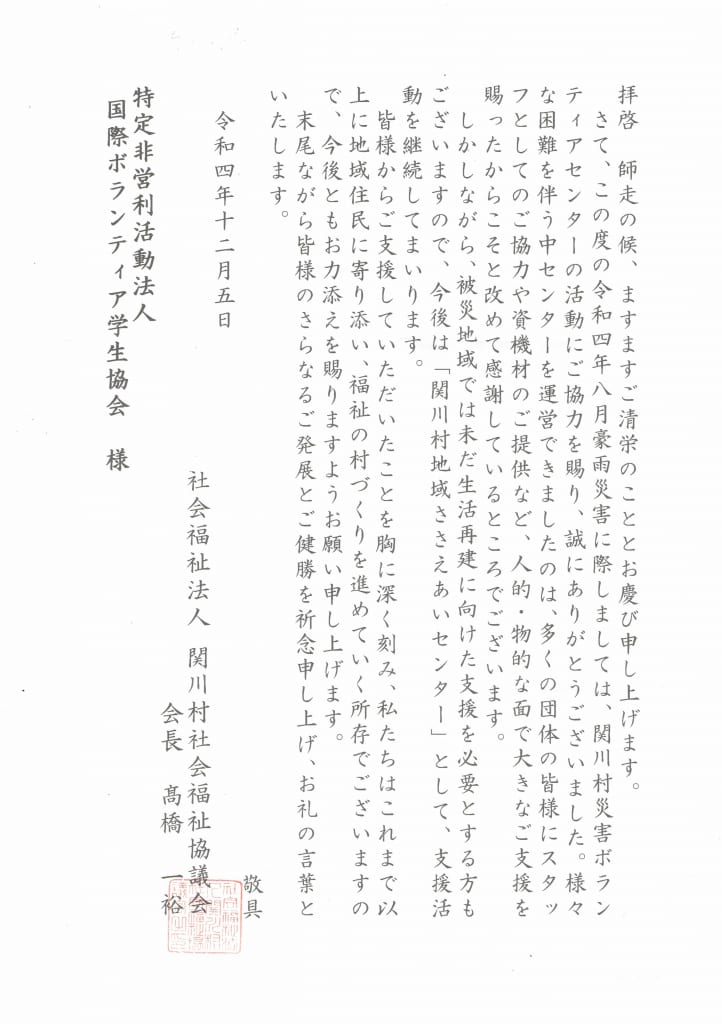 拝啓　師走の候、ますますご清栄のこととお慶び申し上げます。
さて、この度の令和四年八月豪雨災害に際しましては、関川村災害ボラン
ティアセンターの活動にご協力を賜り、誠にありがとうございました。様々
な困難を伴う中センターを運営できましたのは、多くの団体の皆様にスタッ
フとしてのご協力や資機材のご提供など、人的・物的な面で大きなご支援を
賜ったからこそと改めて感謝しているところでございます。
しかしながら、被災地域では未だ生活再建に向けた支援を必要とする方も
ございますので、今後は「関川村地域ささえあいセンター」として、支援活
動を継続してまいります。
皆様からご支援していただいたことを胸に深く刻み、私たちはこれまで以
上に地域住民に寄り添い、福祉の村づくりを進めていく所存でございますの
で、今後ともお力添えを賜りますようお願い申し上げます。
末尾ながら皆様のさらなるご発展とご健勝を祈念申し上げ、お礼の言葉と
いたします。
敬具
令和四年十二月五日
社会福祉法人　関川村社会福祉協議会
会長　髙橋　一裕
特定非営利活動法人
国際ボランティア学生協会　様